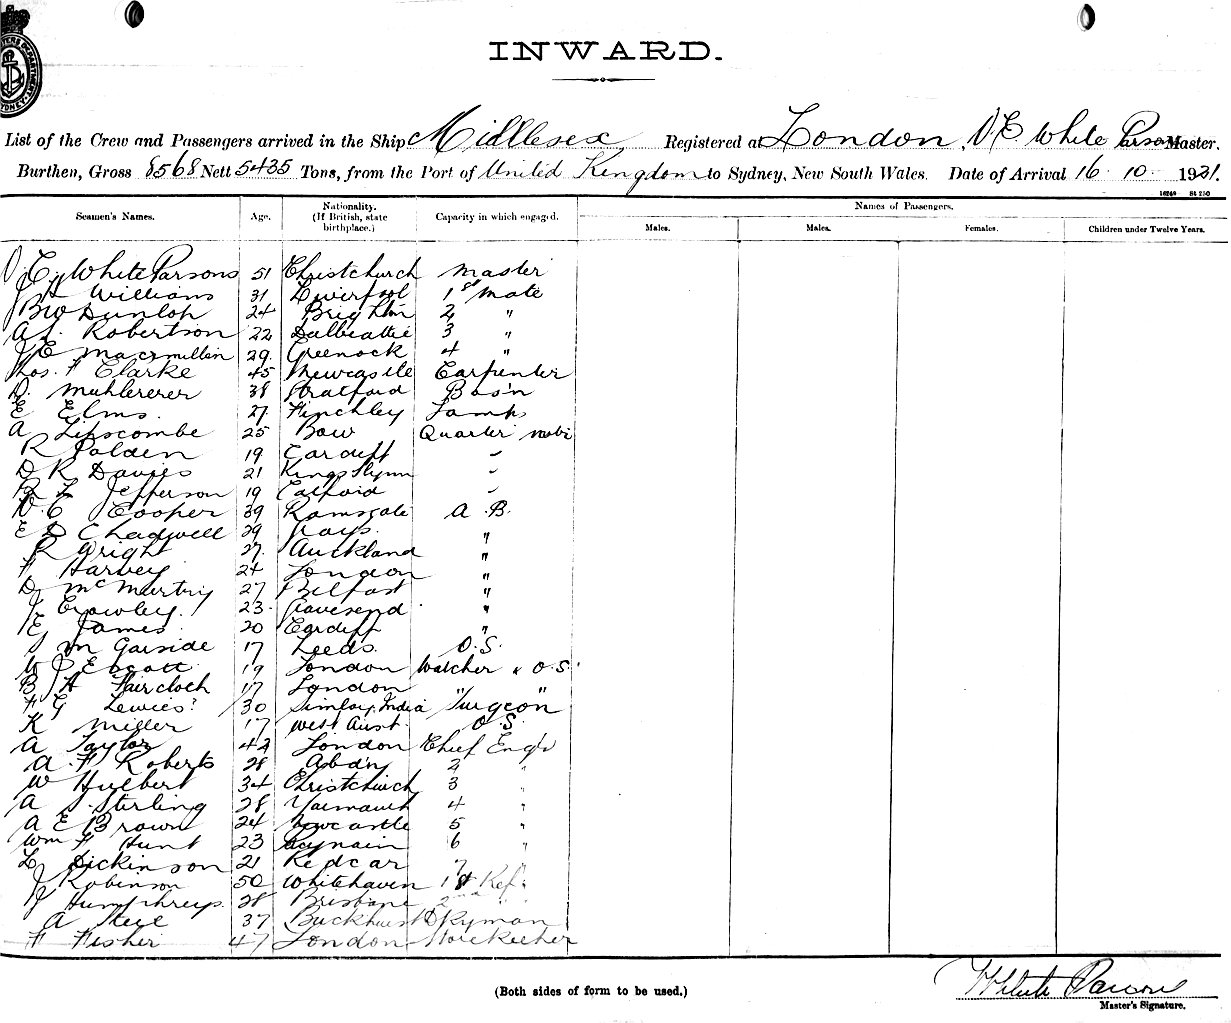 INWARD.
List of the Crew and Passengers arrived in the Ship Middlesex Registered at London, V. E. White Parsons Master,
Burthen, Gross 8568 Nett 5435 Tons, from the Port of United Kingdom to Sydney, New South Wales. Date of Arrival 16 10 1921.
Seamen's Names. Age. Nationality. (If British, state birthplace.) Capacity in which engaged. Names of Passengers.
Males. Males. Females. Children under Twelve Years.
E. White Parsons 51 Christchurch Master
J H Williams 31 Liverpool 1st Mate
BW Dunlop 24 Brighton 2 "
A. Robertson 22 Dalbeattie 3 "
J E Macmillan 29. Greenock 4 "
Thos. F Clarke 45 Newcastle Carpenter
D. Muhlererer 38 Stratford Bos'n
E Elms. 27. Finchley Lamps
A Lipscombe 25 Bow Quarter
R Polden 19 Cardiff "
D R Davies 21 Kings Lynn "
R L Jefferson 19 Catford "
W. C Cooper 39 Ramsgate A. B.
E D Chadwell 29 Grays. "
R Wright 27. Auckland "
F Harvey 24 London "
D McMurtry 27 Belfast "
J Crowley. 23. Gravesend "
E James 20 Cardiff "
S M Garside 17 Leeds. O. S.
W J E 19 London Watcher & O. S.
B H Faircloch 17 London " "
F G Lewies? 30 Simla, India Surgeon
K Miller 17 West Aust. O. S.
A Taylor 42 London Chief Eng'r
A F Roberts 28 Abd'n 2 "
W Hulbert 34 Christchurch 3 "
A S. Sterling 28 Yarmouth 4 "
A E Brown 24 Newcastle 5 "
Wm F Hunt 23 6 "
L Dickinson 21 Redcar 7 "
J Robinson 50 Whitehaven 1st Ref.
J Humphreys. 28 Brisbane 2nd "
A Steel 37 Buckhurst
F Fisher 47 London Storekeeper
(Both sides of form to be used.)
White Parsons
Master's Signature.